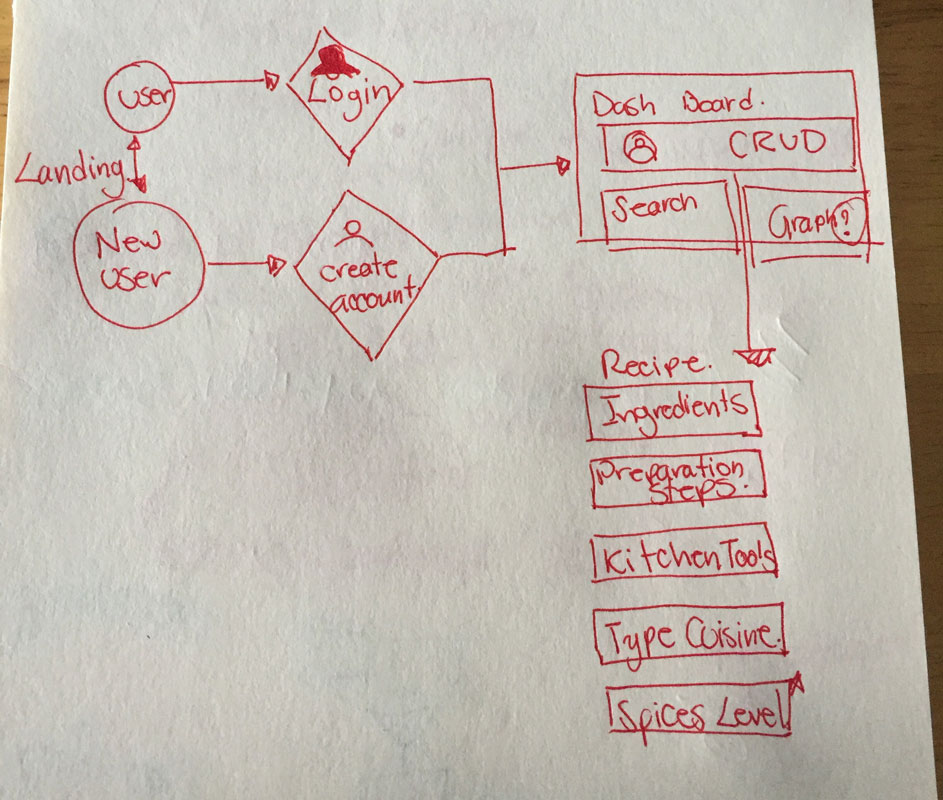 User
Login
Landing
New
user
create
account.
Dash Board.
CRUD
Search
Graph?
Recipe.
Ingredients
Preparation
steps.
Kitchen Tools
Type Cuisine.
Spices Level